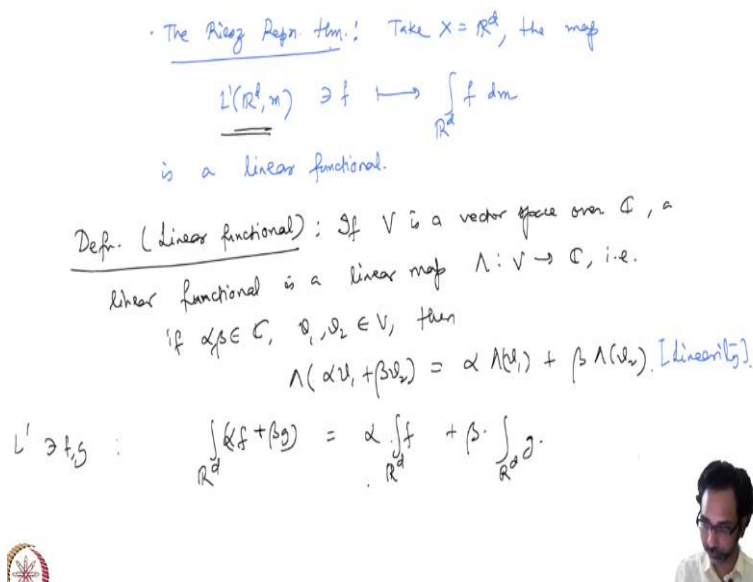 · The Riesz Repn. thm.: Take X = ℝᵈ, the map
L¹(ℝᵈ, m) ∋ f ⟼ ∫_{ℝᵈ} f dm
is a linear functional.
Defn. (Linear functional): If V is a vector space over ℂ, a
linear functional is a linear map Λ: V → ℂ, i.e.
if α, β ∈ ℂ, v₁, v₂ ∈ V, then
Λ(αv₁ + βv₂) = α Λ(v₁) + β Λ(v₂). [Linearity].
L¹ ∋ f, g : ∫_{ℝᵈ} (αf + βg) = α ∫_{ℝᵈ} f + β· ∫_{ℝᵈ} g.